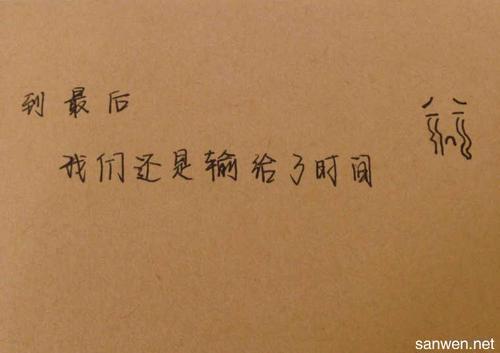 到最后
我们还是输给了时间
sanwen.net